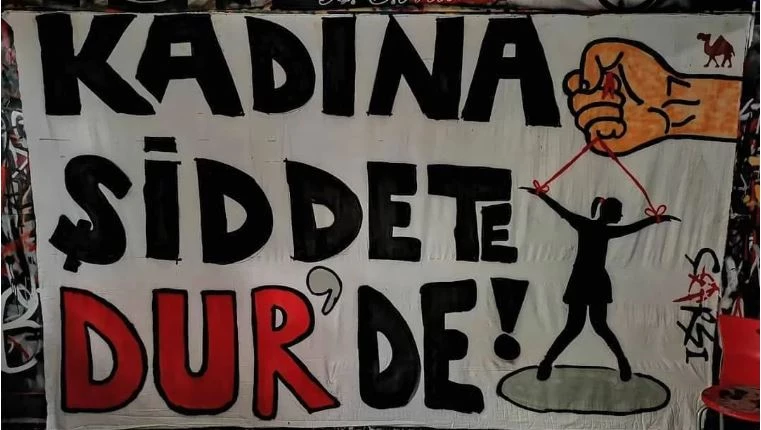 KADINA
ŞİDDETE
DUR'DE!
ÇARŞI